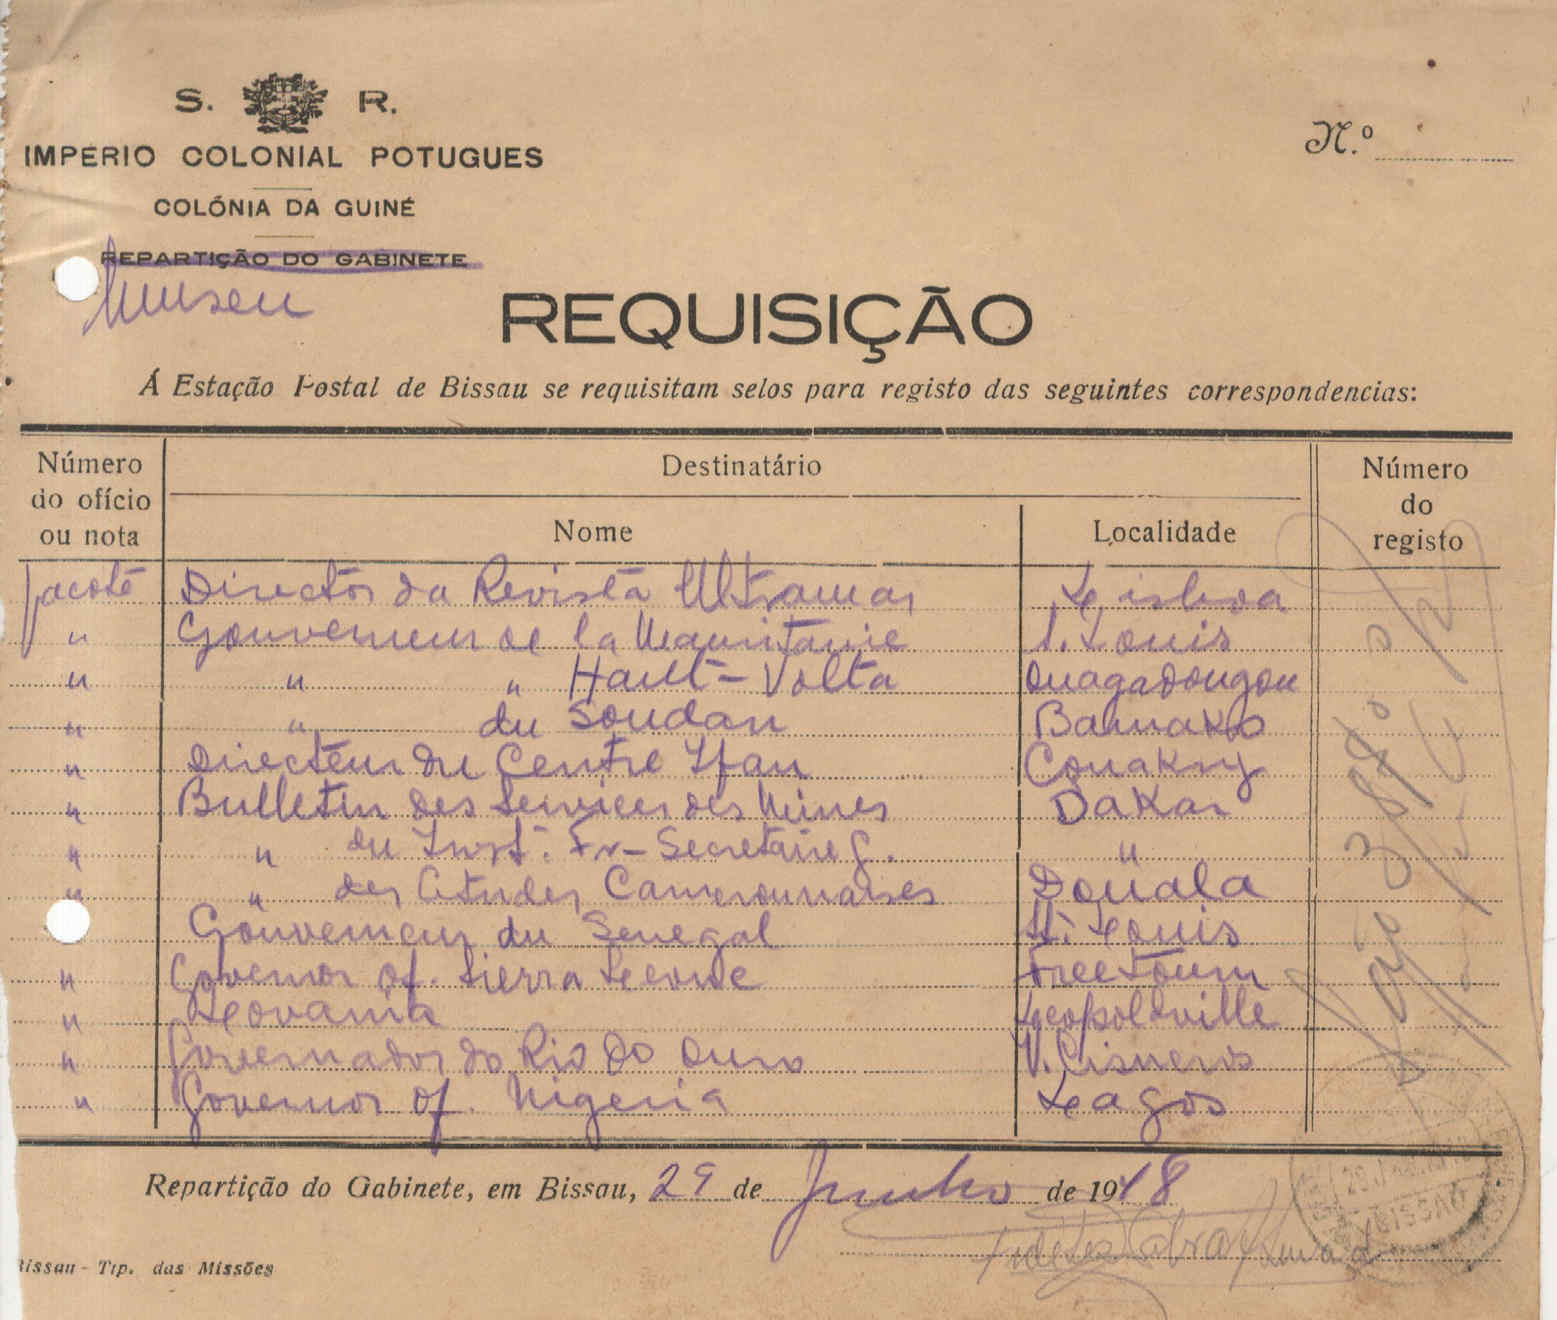 S. R.
IMPERIO COLONIAL POTUGUES
N.º
COLÓNIA DA GUINÉ
REPARTIÇÃO DO GABINETE
Museu
REQUISIÇÃO
Á Estação Postal de Bissau se requisitam selos para registo das seguintes correspondencias:
Número do ofício ou nota
Destinatário
Número do registo
Nome Localidade
Pacote Director da Revista Ultramar Lisboa
" Gouverneur de la Mauritanie S. Louis
" " " Hault-Volta Ouagadougou
" " du Soudan Bamako
" Directeur du Centre Ifan Conakry
" Bulletin des Services des Mines Dakar
" " du Inst. Fr-Secretaire G. "
" " des Etudes Camerounaises Douala
Gouverneur du Senegal St. Louis
" Governor of. Sierra Leone Freetown
" Leovania Leopoldville
" Governador do Rio do Ouro V. Cisneros
" Governor of. Nigeria Lagos
Repartição do Gabinete, em Bissau, 29 de Junho de 1948
BISSAU
Bissau - Tip. das Missões